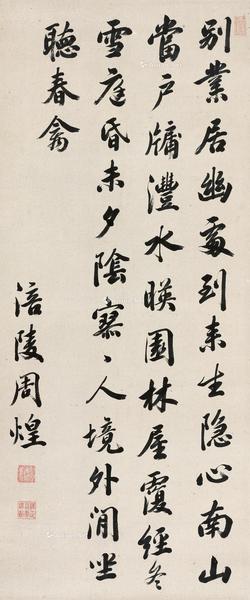 別業居幽處到来生隐心南山
當户牖灃水暎園林屋覆經冬
雪庭昏未夕陰寥〻人境外閒坐
聽春禽
涪陵周煌